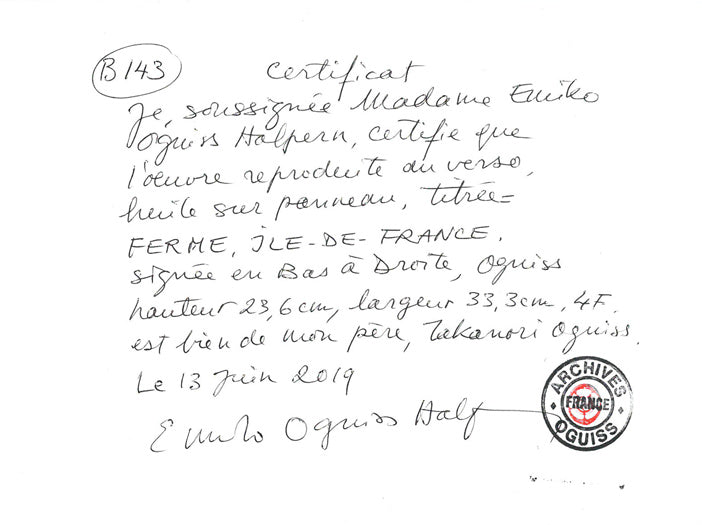 B 143
Certificat
Je, soussignée Madame Emiko
Oguiss Halpern, certifie que
l'oeuvre reproduite au verso,
huile sur panneau, titrée=
FERME, ÎLE-DE-FRANCE.
signée en Bas à Droite, Oguiss
hauteur 23,6cm, largeur 33,3cm, 4F.
est bien de mon père, Takanori Oguiss.
Le 13 Juin 2019
Emiko Oguiss Halp
ARCHIVES
FRANCE
OGUISS